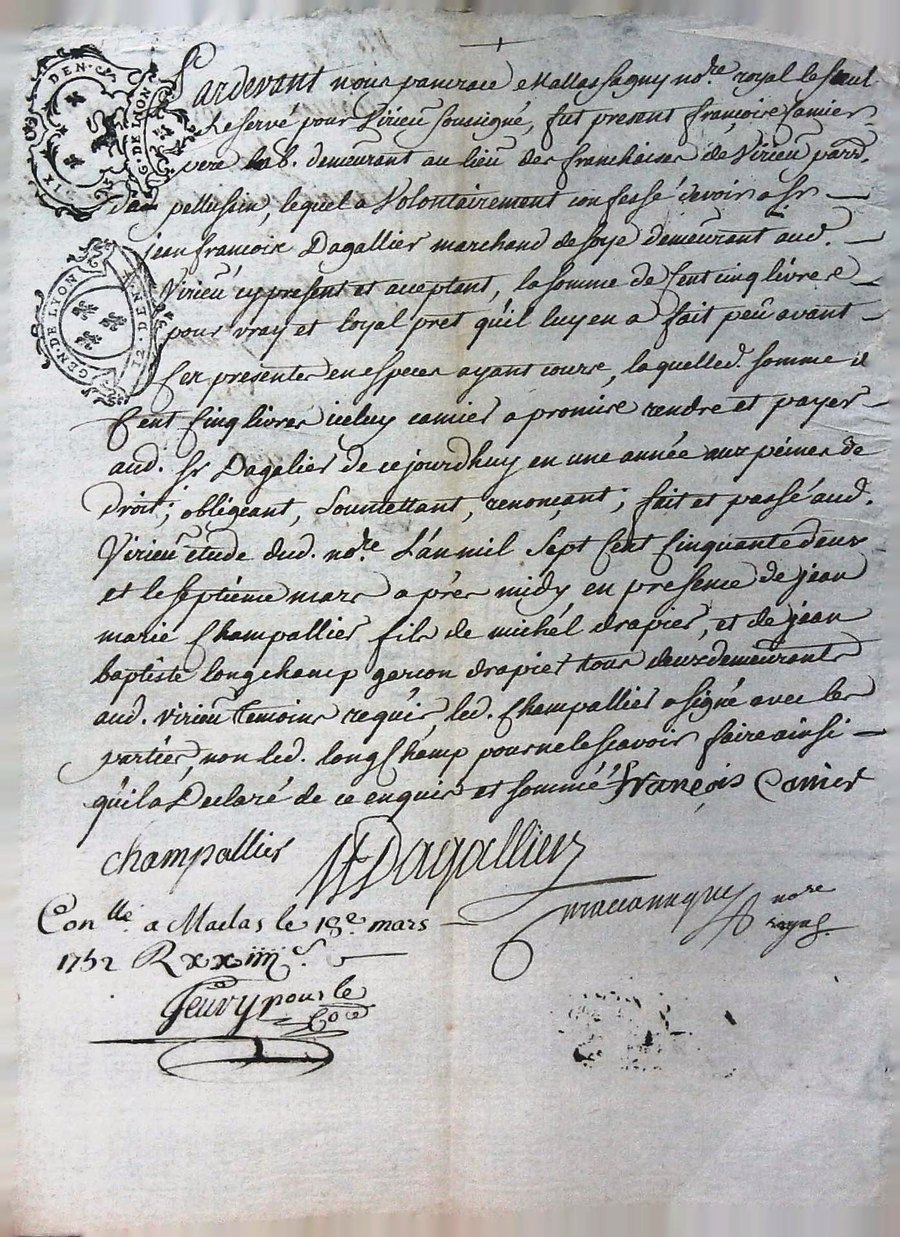 SIX DEN.
G. DE LYON
Pardevant nous pancrace no.re royal le seul
Reservé pour Virieu soussigné, fut present françois Camier
pere lab. demeurant au lieu des franchises de Virieu parr.
pellussin, lequel a Volontairement confessé devoir a Sr
jean francois Dagallier marchand de soye demeurant aud.
Virieu cy present et acceptant, la somme de Cent cinq livres
pour vray et loyal pret qu'il luy en a fait peu avant
GEN. DE LYON
12. DEN.
Ces presentes en especes ayant cours, laquelled. somme de
Cent Cinq livres iceluy camier a promise rendre et payer
aud. Sr Dagalier de cejourdhuy en une année aux peines de
droit; obligeant, Soumettant, renonçant; fait et passé aud.
Virieu étude dud. no.re L'an mil Sept Cent Cinquante deux
et le septième mars apres midy en presence de jean
marie Champallier fils de michél drapier, et de jean
baptiste longchamp garcon drapier tous deux demeurants
aud. Virieu temoins requis led. Champallier a signé avec les
parties, non led. longChamp pour ne le scavoir faire ainsi
qu'il a Declaré de ce enquis et sommé françois Camier
champallier JF Dagallier
no.re
royal
Con.llé a Maclas le 18.e mars
1752 R xxiiii s.
pour le
Co.re